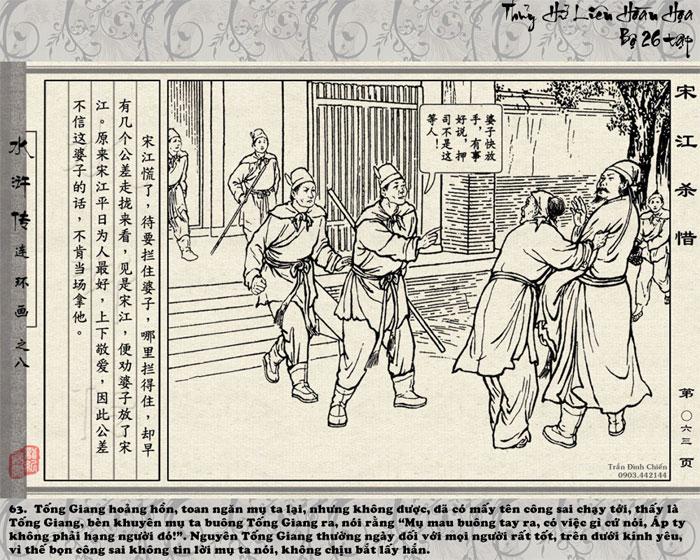 Thủy Hử Liên Hoàn Họa
Bộ 26 tập
宋江杀惜
第〇六三页
婆子快放
手，有事
好说，押
司不是这
等人！
宋江慌了，待要拦住婆子，哪里拦得住，却早
有几个公差走拢来看，见是宋江，便劝婆子放了宋
江。原来宋江平日为人最好，上下敬爱，因此公差
不信这婆子的话，不肯当场拿他。
水浒传
连环画之八
Trần Đình Chiến
0903.442144
63. Tống Giang hoảng hồn, toan ngăn mụ ta lại, nhưng không được, đã có mấy tên công sai chạy tới, thấy là
Tống Giang, bèn khuyên mụ ta buông Tống Giang ra, nói rằng “Mụ mau buông tay ra, có việc gì cứ nói, Áp ty
không phải hạng người đó!”. Nguyên Tống Giang thường ngày đối với mọi người rất tốt, trên dưới kính yêu,
vì thế bọn công sai không tin lời mụ ta nói, không chịu bắt lấy hắn.